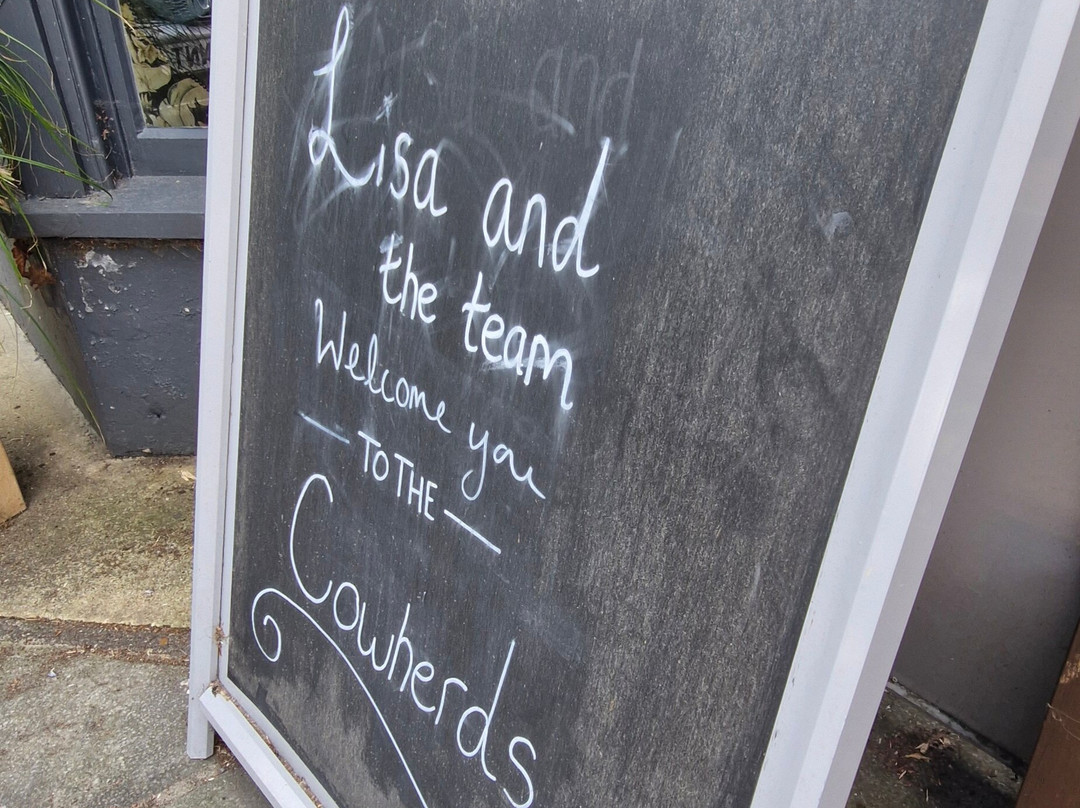 Lisa and
the team
Welcome you
TO THE
Cowherds